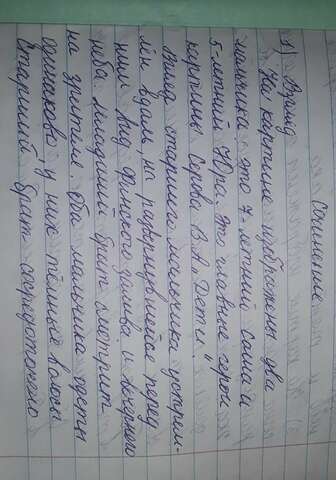 Сочинение
1) Вряид
На картине изображены два
мальчика это 7 летний Саша и
5-летний Юра. Это главные герои
картины Серова В. А „Дети".
Взгляд старшего мальчика устрем-
лён вдаль на развернувшейся перед
ним вид финского залива и вечернего
неба. Младший брат смотрит
на зрителя. Оба мальчика одеты
одинаково у них тёмные волосы.
Старший брат сосредоточено